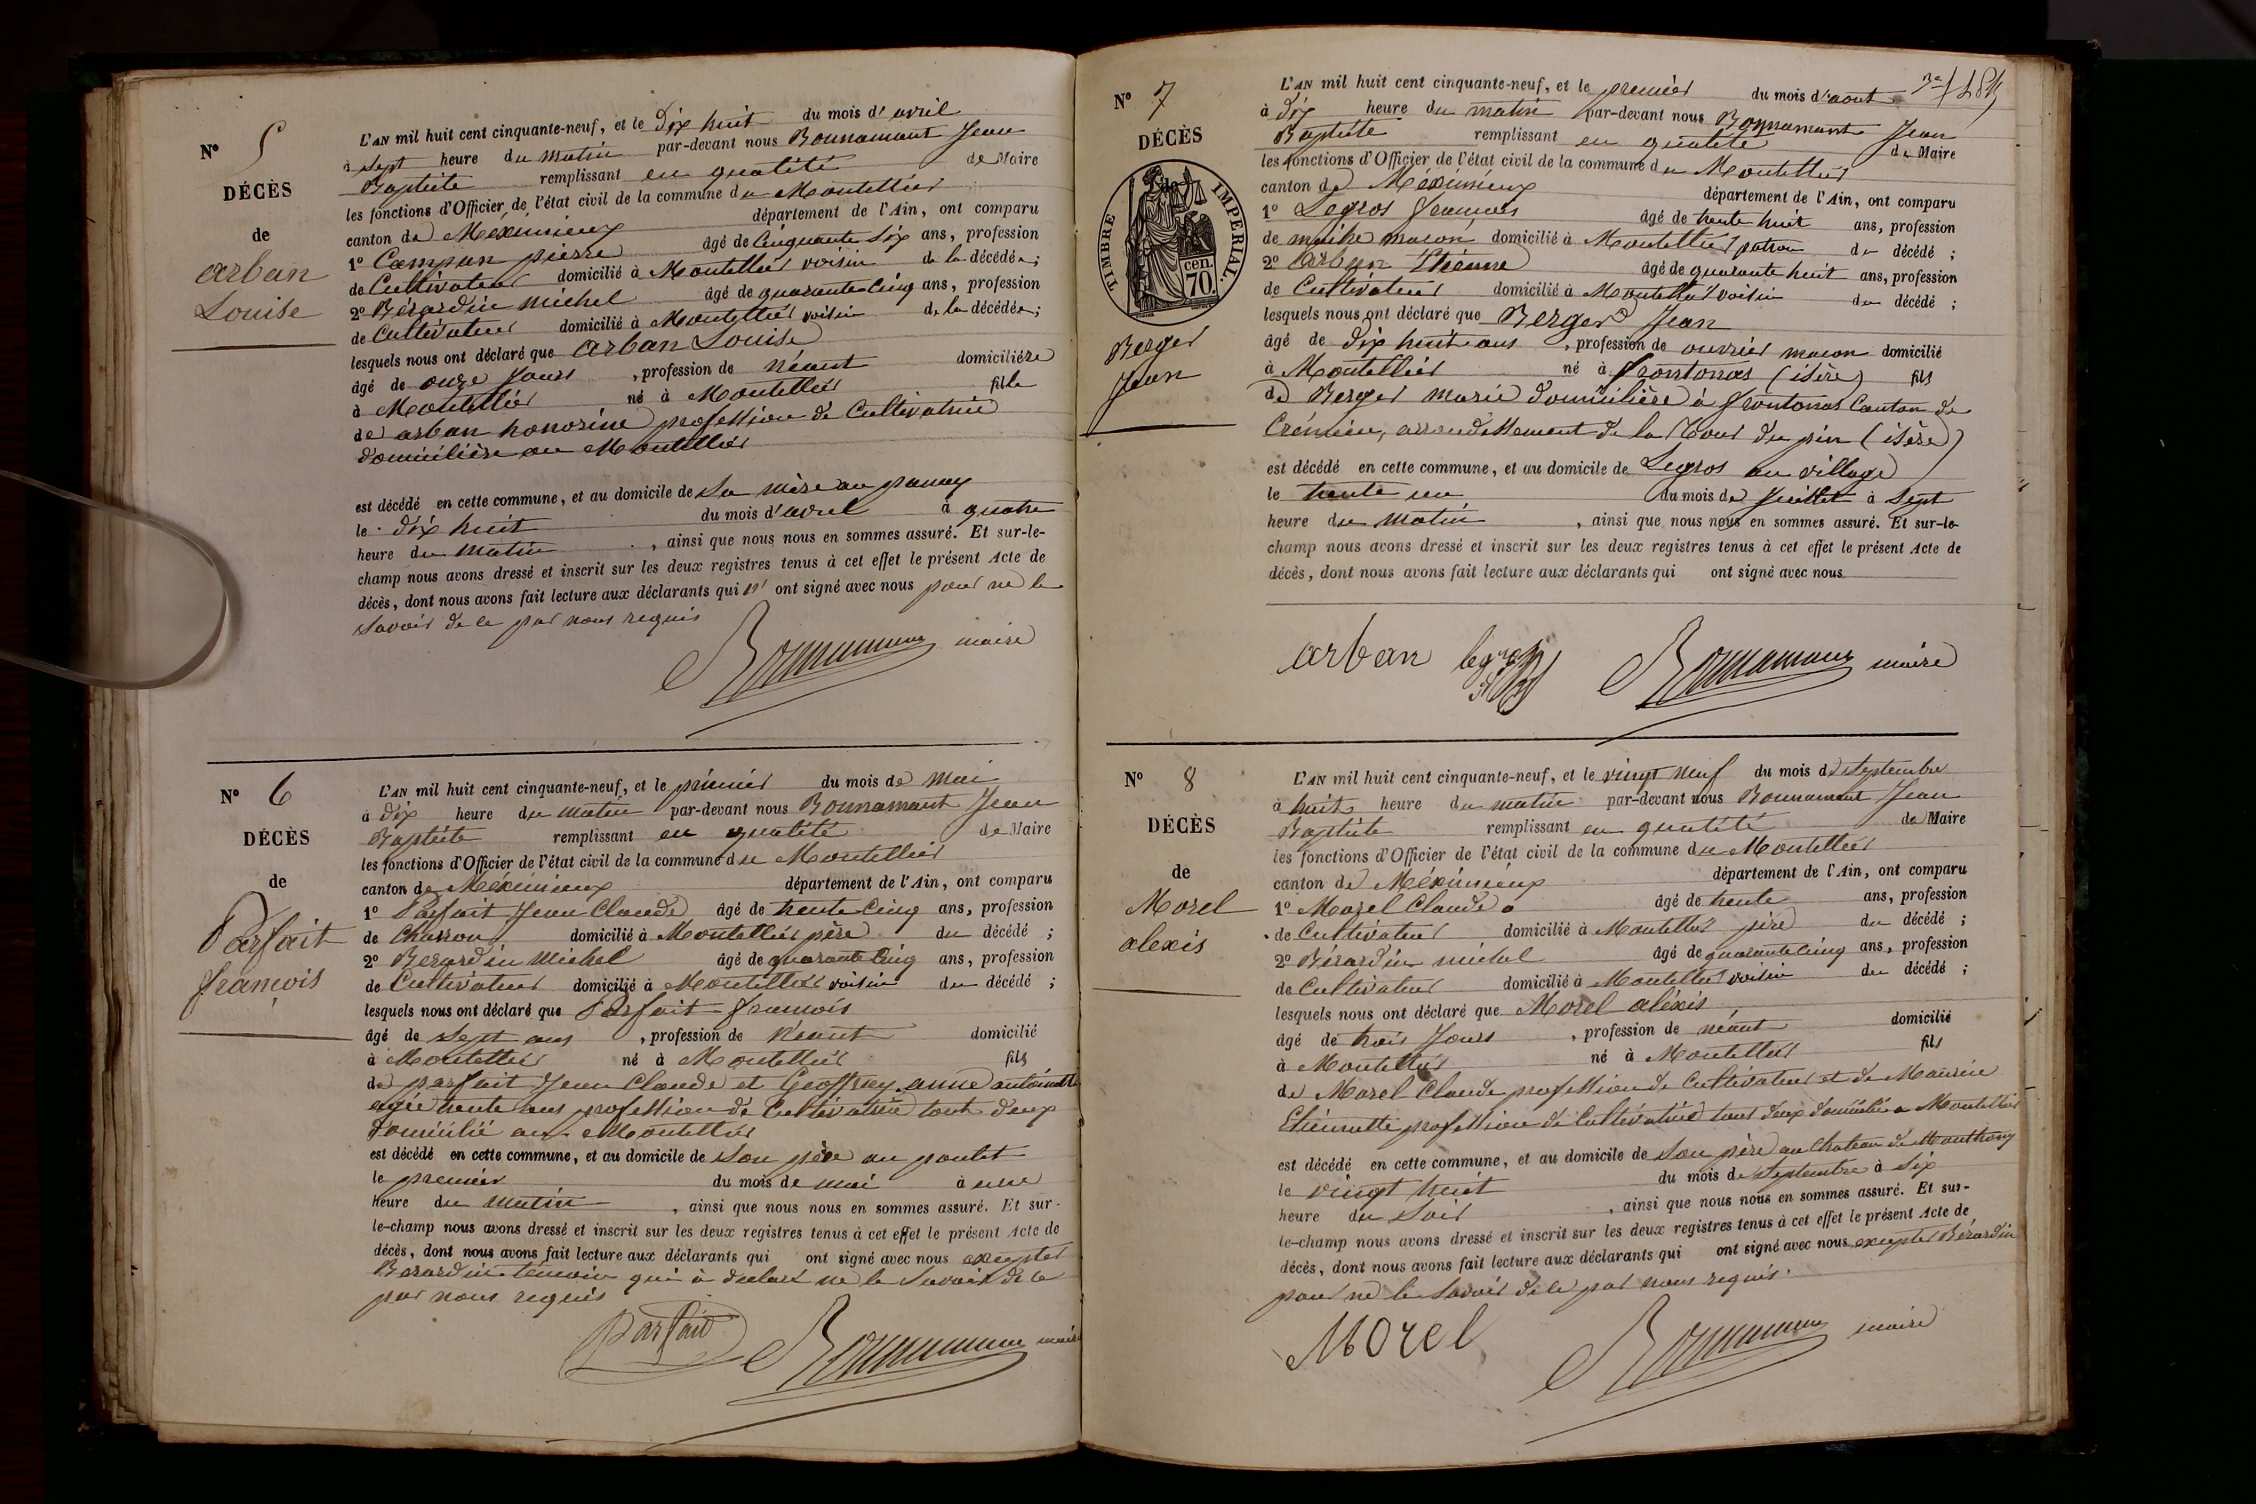 N° 5
DÉCÈS
de
arban
Louise
L'AN mil huit cent cinquante-neuf, et le dix huit du mois d'avril
à sept heure du matin par-devant nous Bonnamant Jean
Baptiste remplissant en qualité de Maire
les fonctions d'Officier de l'état civil de la commune du Montellier
canton de Méximieux département de l'Ain, ont comparu
1° Campan pierre âgé de Cinquante Six ans, profession
de Cultivateur domicilié à Montellier voisin de la décédée;
2° Bérardin michel âgé de quarante Cinq ans, profession
de Cultivateur domicilié à Montellier voisin de la décédée;
lesquels nous ont déclaré que arban Louise
âgé de onze Jours , profession de néant domiciliére
à Montellier né à Montellier fille
de arban honorine profession de Cultivatrice
domicilière au Montellier
est décédé en cette commune, et au domicile de Sa mère au
le dix huit du mois d'avril à quatre
heure du matin , ainsi que nous nous en sommes assuré. Et sur-le-
champ nous avons dressé et inscrit sur les deux registres tenus à cet effet le présent Acte de
décès, dont nous avons fait lecture aux déclarants qui n' ont signé avec nous pour ne le
savoir de ce par nous requis
Bonnamant maire
N° 6
DÉCÈS
de
Parfait
françois
L'AN mil huit cent cinquante-neuf, et le prémier du mois de mai
à dix heure du matin par-devant nous Bonnamant Jean
Baptiste remplissant en qualité de Maire
les fonctions d'Officier de l'état civil de la commune du Montellier
canton de Méximieux département de l'Ain, ont comparu
1° Parfait Jean Claude âgé de trente Cinq ans, profession
de Charron domicilié à Montellier père du décédé ;
2° Berardin Michel âgé de quarante Cinq ans, profession
de Cultivateur domicilié à Montellier voisin du décédé ;
lesquels nous ont déclaré que Parfait francois
âgé de Sept ans , profession de Néant domicilié
à Montellier né à Montellier fils
de parfait Jean Claude et Geoffray anne antoinette
agée trente ans profession de Cultivatrice tout deux
domicilié au Montellier
est décédé en cette commune, et au domicile de Son père au poulet
le premier du mois de mai à une
heure du matin , ainsi que nous nous en sommes assuré. Et sur-
le-champ nous avons dressé et inscrit sur les deux registres tenus à cet effet le présent Acte de
décès, dont nous avons fait lecture aux déclarants qui ont signé avec nous excepter
Berardin témoin qui à declaré ne le Savoir de ce
par nous requis
Parfait Bonnamant maire
N° 7
DÉCÈS
TIMBRE IMPÉRIAL.
70 cen.
Berger
Jean
L'AN mil huit cent cinquante-neuf, et le premier du mois d'aout
à dix heure du matin par-devant nous Bonnamant Jean
Baptiste remplissant en qualité de Maire
les fonctions d'Officier de l'état civil de la commune du Montellier
canton de Méximieux département de l'Ain, ont comparu
1° Legros francois âgé de trente huit ans, profession
de maitre macon domicilié à Montellier patron du décédé ;
2° Arban Etienne âgé de quarante huit ans, profession
de Cultivateur domicilié à Montellier voisin du décédé ;
lesquels nous ont déclaré que Berger Jean
âgé de dix huit ans , profession de ouvrier macon domicilié
à Montellier né à frontonas (isère) fils
de Berger marie domicilière à frontonas Canton de
Crémieu, arrondissement de la Tour du pin (isère)
est décédé en cette commune, et au domicile de Legros au village
le trente un du mois de Juillet à Sept
heure du matin , ainsi que nous nous en sommes assuré. Et sur-le-
champ nous avons dressé et inscrit sur les deux registres tenus à cet effet le présent Acte de
décès, dont nous avons fait lecture aux déclarants qui ont signé avec nous
arban legros Bonnamant maire
N° 8
DÉCÈS
de
Morel
alexis
L'AN mil huit cent cinquante-neuf, et le vingt neuf du mois de Septembre
à huit heure du matin par-devant nous Bonnamant Jean
Baptiste remplissant en qualité de Maire
les fonctions d'Officier de l'état civil de la commune du Montellier
canton de Méximieux département de l'Ain, ont comparu
1° Morel Claude âgé de trente ans, profession
de Cultivateur domicilié à Montellier père du décédé ;
2° Bérardin michel âgé de quarante Cinq ans, profession
de Cultivateur domicilié à Montellier voisin du décédé ;
lesquels nous ont déclaré que Morel aléxis
âgé de trois Jours , profession de néant domicilié
à Montellier né à Montellier fils
de Morel Claude profession de Cultivateur et de Maurin
Etiennette profession de Cultivatrice tout deux domicilié a Montellier
est décédé en cette commune, et au domicile de Son père au Chateau de Monthony
le vingt huit du mois de Septembre à Six
heure du Soir , ainsi que nous nous en sommes assuré. Et sur-
le-champ nous avons dressé et inscrit sur les deux registres tenus à cet effet le présent Acte de
décès, dont nous avons fait lecture aux déclarants qui ont signé avec nous excepter Bérardin
pour ne le Savoir de ce par nous requis.
Morel Bonnamant maire